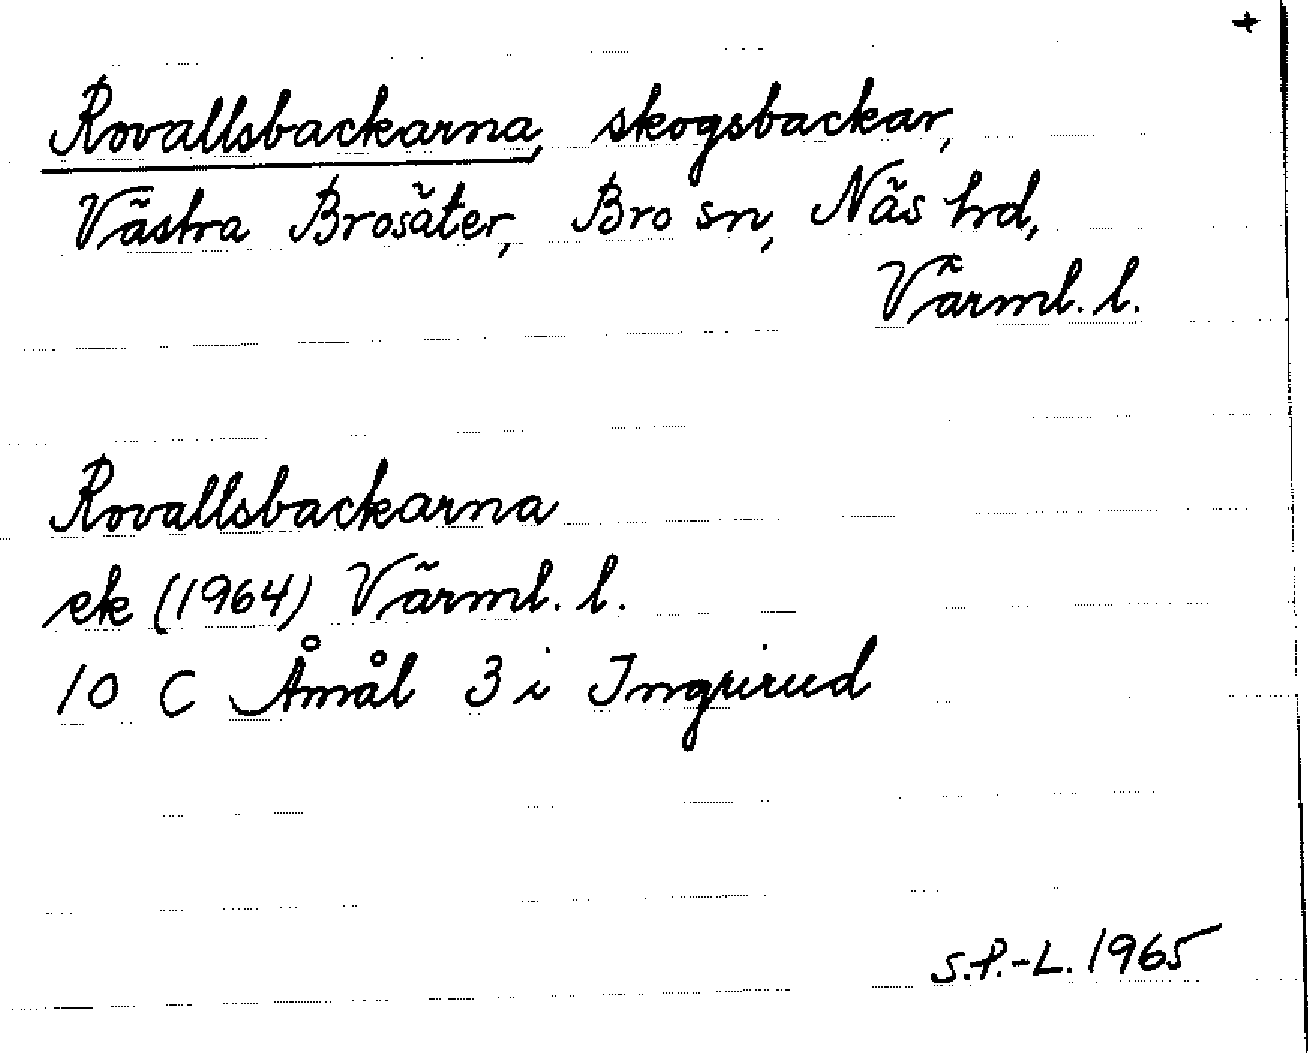 +
Rovallsbackarna, skogsbackar,
Västra Brosäter, Bro sn, Näs hd,
Värml. l.
Rovallsbackarna
ek (1964) Värml. l.
10 C Åmål 3 i Ingrirud
S.P.-L. 1965